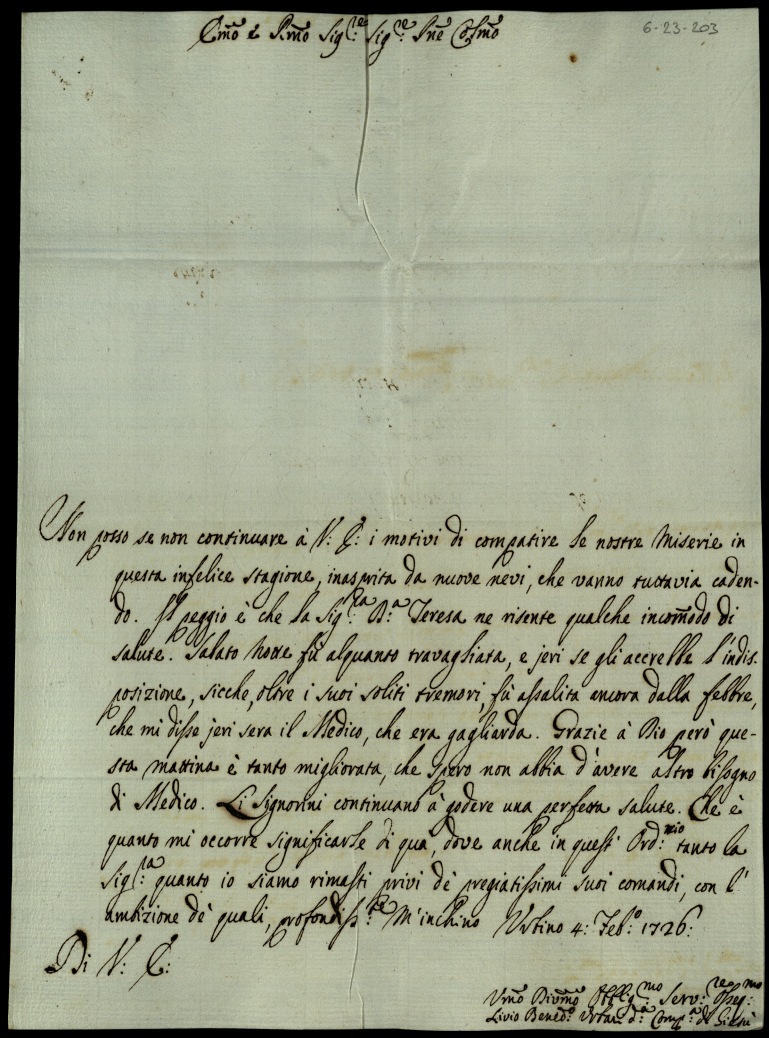 Emo e Rmo Sig:re Sig:re Pne Colmo
6-23-203
Non posso se non continuare à V: E: i motivi di compatire le nostre Miserie in
questa infelice stagione, inasprita da nuove nevi, che vanno tuttavia caden-
do. Il peggio è che la Sig:ra D:a Teresa ne risente qualche incomodo di
salute. Sabato notte fù alquanto travagliata, e jeri se gli accrebbe l'indis-
posizione, sicche, oltre i suoi soliti tremori, fù assalita ancora dalla febbre,
che mi disse jeri sera il Medico, che era gagliarda. Grazie à Dio però que-
sta mattina è tanto migliorata, che spero non abbia d'avere altro bisogno
di Medico. Li Signorini continuano à godere una perfetta salute. Che è
quanto mi occorre significarle di quà, dove anche in quest' Ord:rio tanto la
Sig:ra quanto io siamo rimasti privi dè pregiatissimi suoi comandi, con l'
ambizione dè quali, profondiss:te M'inchino Urbino 4: Feb:o 1726:
Di V: E:
Umo Divmo Obblig:mo Serv:re Osseq:mo
Livio Bened:o d:a Comp:a di Giesù